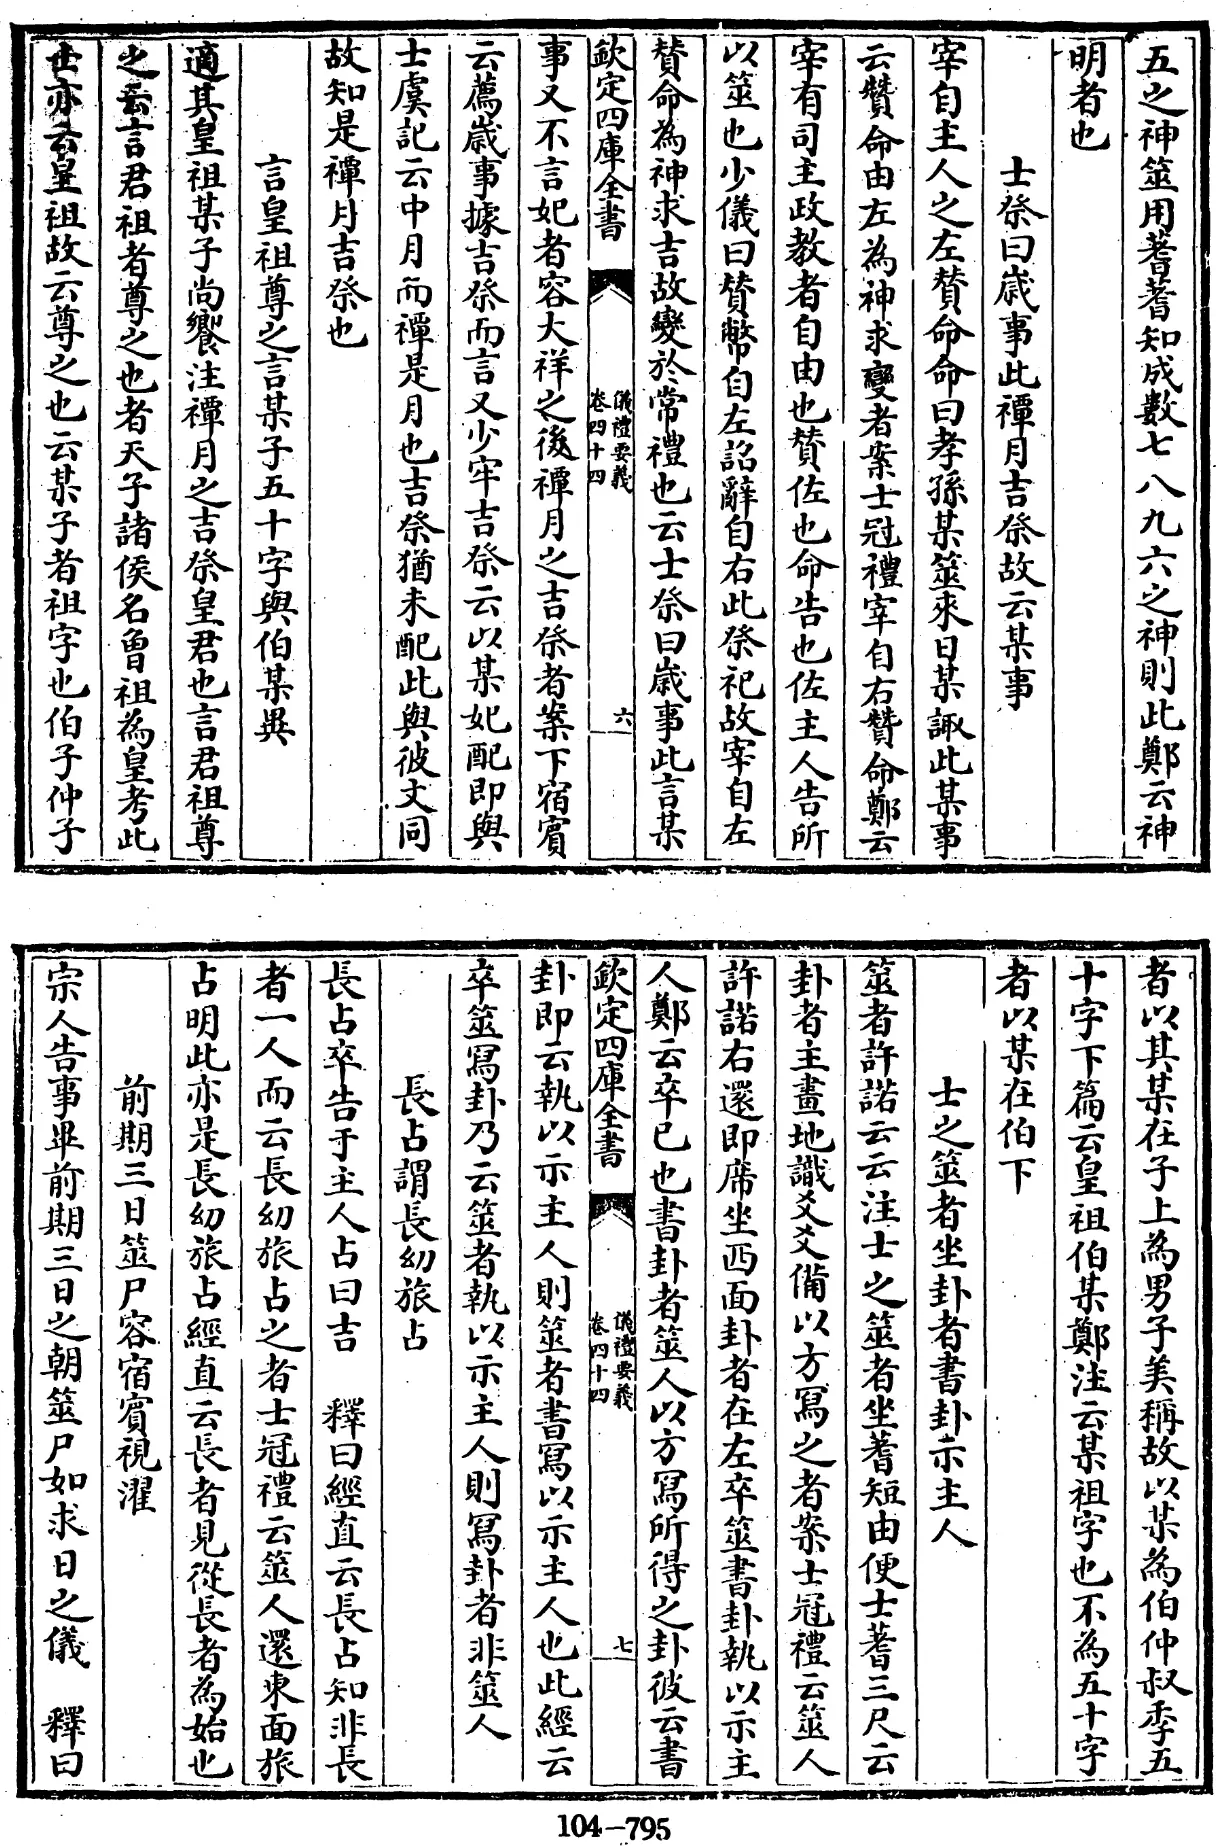 五之神筮用蓍蓍知成數七八九六之神則此鄭云神
明者也
士祭曰歲事此禫月吉祭故云某事
宰自主人之左贊命命曰孝孫某筮來日某諏此某事
云贊命由左為神求變者案士冠禮宰自右贊命鄭云
宰有司主政教者自由也贊佐也命告也佐主人告所
以筮也少儀曰贊幣自左詔辭自右此祭祀故宰自左
贊命為神求吉故變於常禮也云士祭曰歲事此言某
欽定四庫全書
儀禮要義
卷四十四
六
事又不言妃者容大祥之後禫月之吉祭者案下宿賓
云薦歲事據吉祭而言又少牢吉祭云以某妃配即與
士虞記云中月而禫是月也吉祭猶未配此與彼文同
故知是禫月吉祭也
言皇祖尊之言某子五十字與伯某異
適其皇祖某子尚饗注禫月之吉祭皇君也言君祖尊
之云言君祖者尊之也者天子諸侯名曾祖為皇考此
士亦云皇祖故云尊之也云某子者祖字也伯子仲子
者以其某在子上為男子美稱故以某為伯仲叔季五
十字下篇云皇祖伯某鄭注云某祖字也不為五十字
者以某在伯下
士之筮者坐卦者書卦示主人
筮者許諾云云注士之筮者坐蓍短由便士蓍三尺云
卦者主畫地識爻爻備以方寫之者案士冠禮云筮人
許諾右還即席坐西面卦者在左卒筮書卦執以示主
人鄭云卒已也書卦者筮人以方寫所得之卦彼云書
欽定四庫全書
儀禮要義
卷四十四
七
卦即云執以示主人則筮者書寫以示主人也此經云
卒筮寫卦乃云筮者執以示主人則寫卦者非筮人
長占謂長幼旅占
長占卒告于主人占曰吉　釋曰經直云長占知非長
者一人而云長幼旅占之者士冠禮云筮人還東面旅
占明此亦是長幼旅占經直云長者見從長者為始也
前期三日筮尸容宿賓視濯
宗人告事畢前期三日之朝筮尸如求日之儀　釋曰
104-795